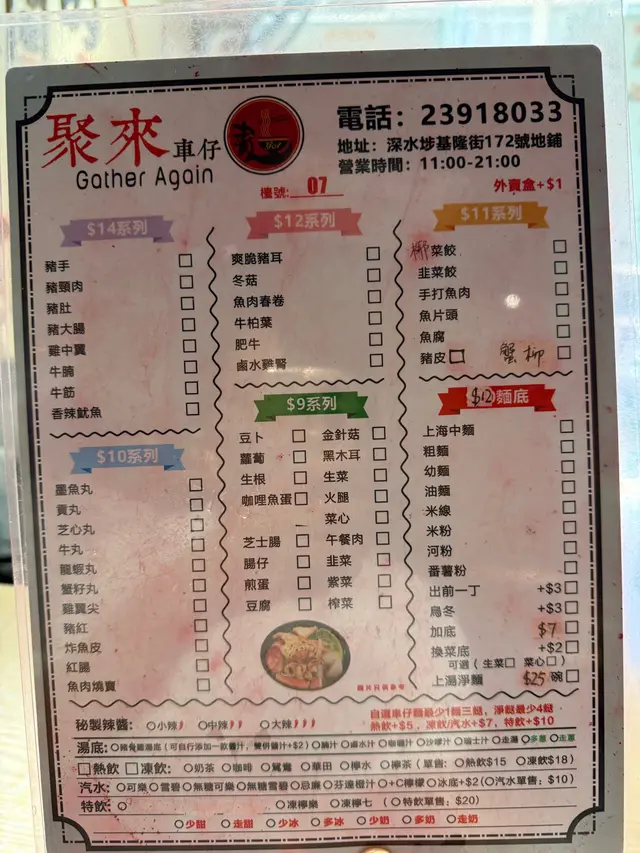 聚來車仔麵
Gather Again
電話：23918033
地址：深水埗基隆街172號地鋪
營業時間：11:00-21:00
檯號: 07
外賣盒+$1
$14系列
豬手
豬頸肉
豬肚
豬大腸
雞中翼
牛腩
牛筋
香辣魷魚
$10系列
墨魚丸
貢丸
芝心丸
牛丸
龍蝦丸
蟹籽丸
雞翼尖
豬紅
炸魚皮
紅腸
魚肉燒賣
$12系列
爽脆豬耳
冬菇
魚肉春卷
牛柏葉
肥牛
鹵水雞腎
$9系列
豆卜 金針菇
蘿蔔 黑木耳
生根 生菜
咖哩魚蛋 火腿
菜心
芝士腸 午餐肉
腸仔 韭菜
煎蛋 紫菜
豆腐 榨菜
圖片只供參考
$11系列
椰菜餃
韭菜餃
手打魚肉
魚片頭
魚腐
豬皮 蟹柳
$12麵底
上海中麵
粗麵
幼麵
油麵
米線
米粉
河粉
番薯粉
出前一丁 +$3
烏冬 +$3
加底 $7
換菜底 +$2
可選（生菜 菜心）
上湯淨麵 $25碗
自選車仔麵最少1麵三餸，淨餸最少4餸
熱飲+$5，凍飲/汽水+$7，特飲+$10
秘製辣醬： 小辣 中辣 大辣
湯底：
走湯 多蔥 走蔥
熱飲 凍飲：奶茶 咖啡 鴛鴦 華田 檸水 檸茶（單售：熱飲$15 凍飲$18）
汽水：可樂 雪碧 無糖可樂 無糖雪碧 忌廉 芬達橙汁 +C檸檬 冰底+$2（汽水單售：$10）
特飲： 凍檸樂 凍檸七（特飲單售：$20）
少甜 走甜 少冰 多冰 少奶 多奶 走奶